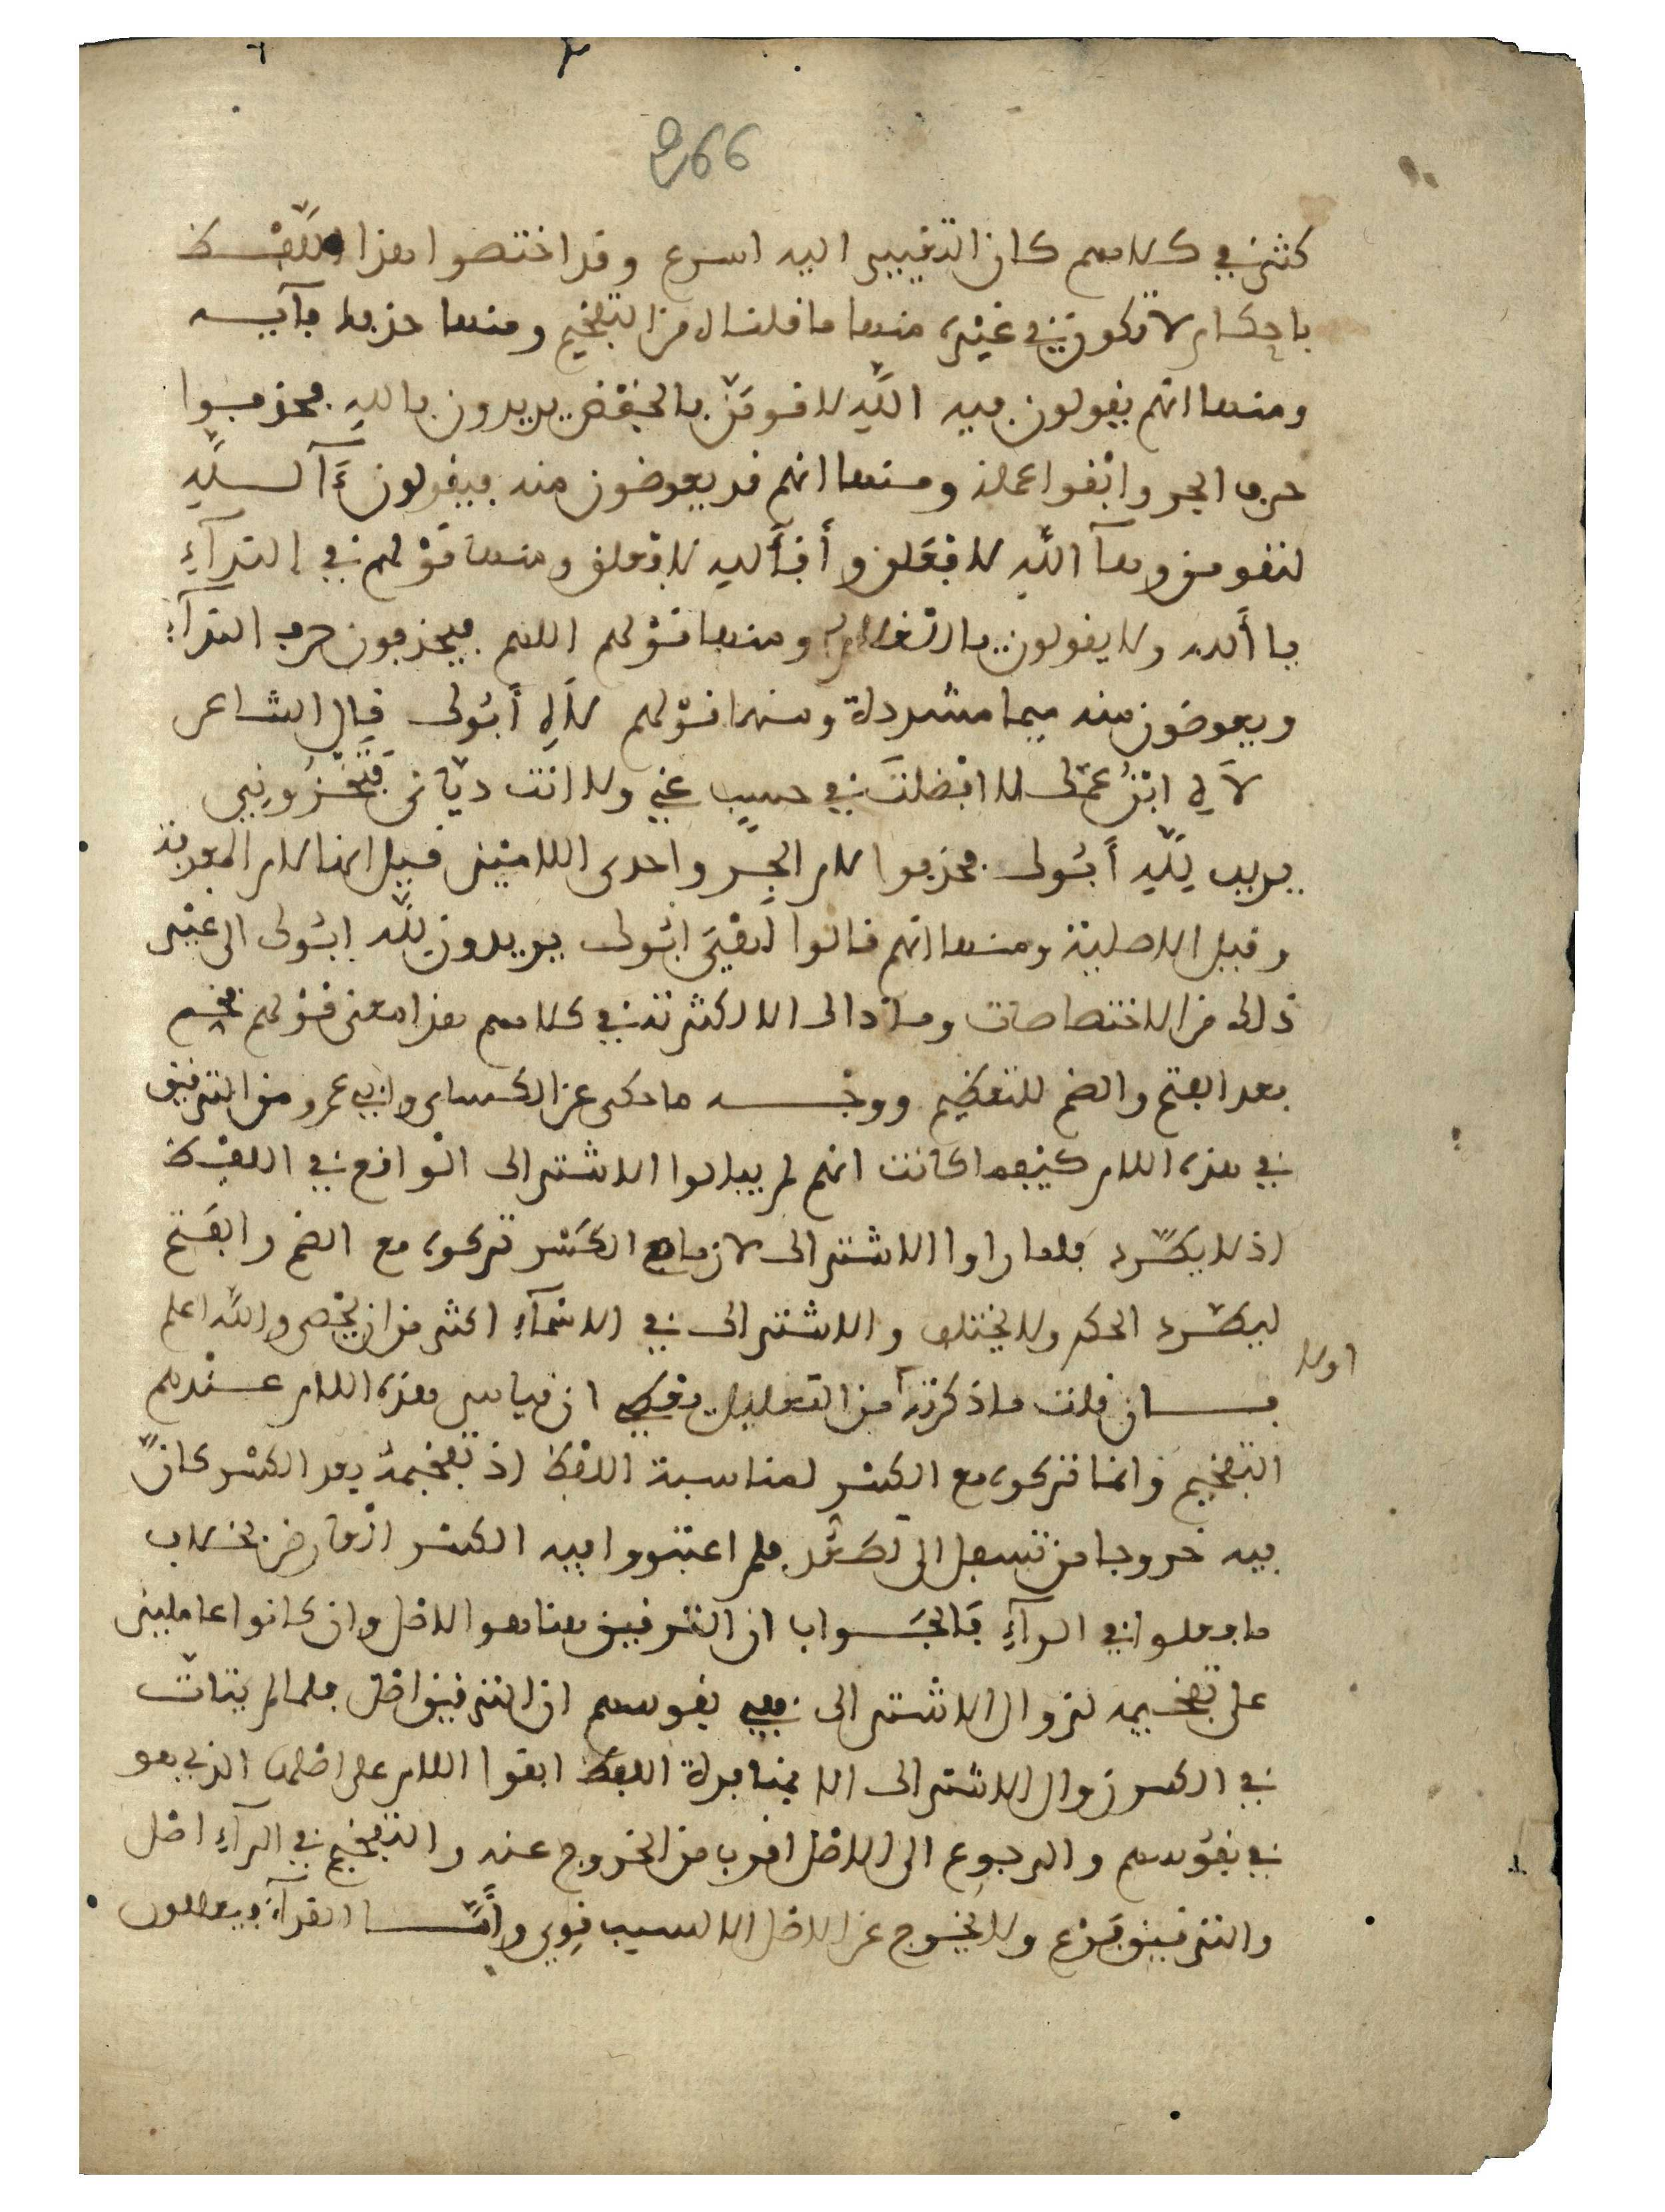 266
كثر في كلامهم كان التغيير اليه اسرع وقد اختصوا هذا اللّفظ
باحكام لا تكون في غيره منها ما قلناه من التفخيم ومنها حذف
ومنها انهم يقولون فيه اللَّهِ لاقومَنّ بالخفض يريدون بالله فحذفوا
حرف الجر وابقوا عمله ومنها انهم قد يعوضون منه فيقولون ءَآللَّهِ
لتقومن وهآ اللَّهِ لافعَلن وأفأللهِ لافعلن ومنها قوْلهم في الندآءِ
يا أَلله ولا يقولون يا ومنها قوْلهم اللهم فيحذفون حرف الندآءِ
ويعوضون منه ميما مشددة ومنها قوْلهم لَاهِ أَبُوك قال الشاعر
لَاهِ ابْنُ عمّك لا افْضلتَ في حسبٍ عني ولا انت ديّاني فَتَخْزُونِي
يريد لِلَّهِ أَبُوك فحذفوا لام الجر واحدى اللامَيْن فقيل انها لام المعرفة
وقيل الاصلية ومنها انهم قالوا لَهْيَ ابُوك يريدون لِلَّه ابُوك الى غيْر
ذلك من الاختصاصات وما ذاك الا لكثرته في كلامهم هذا معنى قوْلهم فخم
بعد الفتح والضم للتعظيم ووجْه ما حكى عن الكساءي وابي عمرو من الترقيق
في هذه اللام كيْفما كانت انهم لم يبالوا الاشتراك الْواقع في اللفْظ
اذ لا يطّرد فلما راوا الاشتراك لازما مع الكسْر تركوه مع الضم والفتح
ليطّرد الحكم ولا يختلف والاشتراك في الاسْمآءِ اكثر من ان يحْصى والله اعلم
فان قلت ما ذكرته اولا من التعليل يعطي ان قياس هذه اللام عندهم
التفخيم وانما تركوه مع الكسْر لمناسبة اللفْظ اذ تفخيمهُ بعد الكسْر كانّ
فيه خروجا من تسفل الى تصعُّد فلم اعتبروا فيه الكسْر العارض بخلاف
ما فعلوا في الرآءِ فَالجَواب ان الترقيق هنا هو الاصْل وان كانوا عاملين
على تفخيمه لزوال الاشتراك ففي نفوسهم ان الترقيق اصْل فلما لم يتاتّ
في الكسر زوال الاشتراك الا بمنافرة اللفْظ ابقوا اللام على اصْلها الذي هو
في نفُوسهم والرجوع الى الاصْل اقرب من الخروج عنه والتفخيم في الرآءِ اصْل
والترقيق فرْع ولا يخرج عن الاصْل الا لسبب قوي وأَمَّا القرآءُ فيعللون